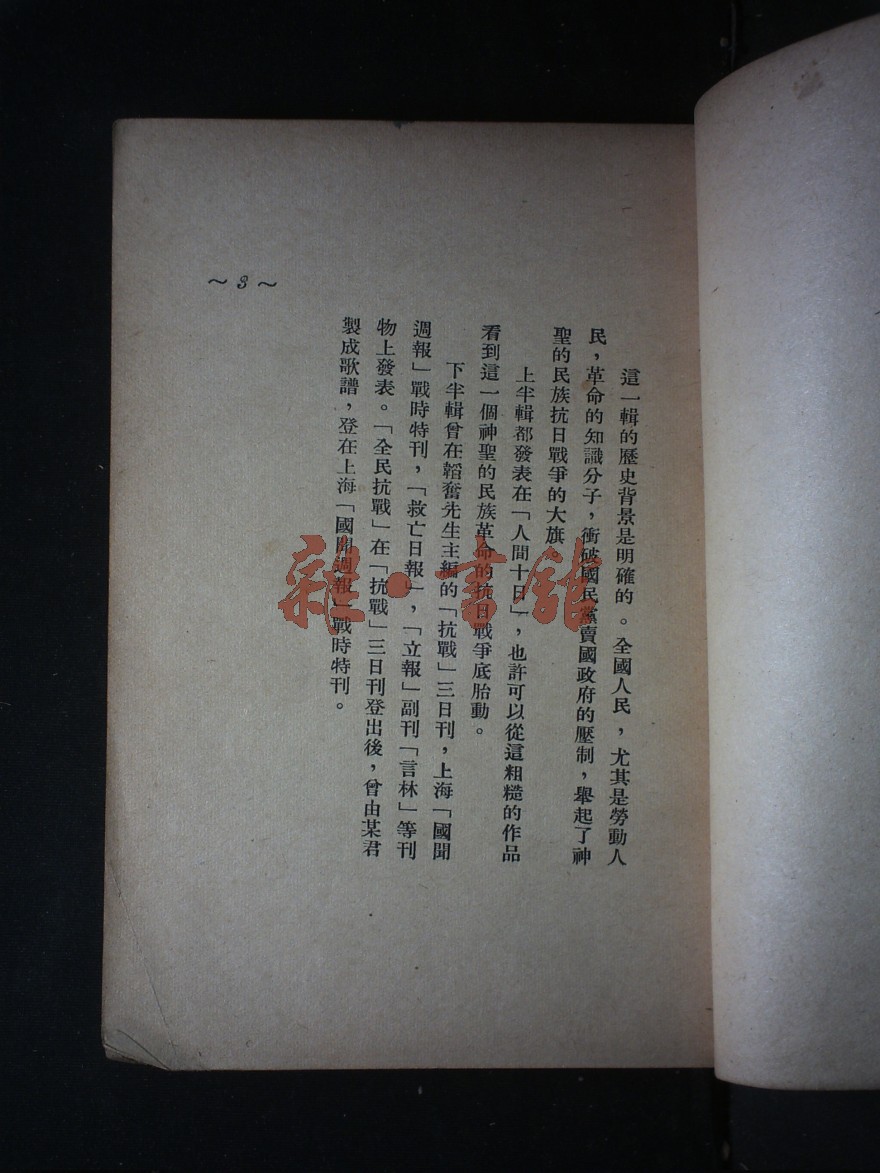 這一輯的歷史背景是明確的。全國人民，尤其是勞動人
民，革命的知識分子，衝破國民黨賣國政府的壓制，舉起了神
聖的民族抗日戰爭的大旗。
上半輯都發表在「人間十日」，也許可以從這粗糙的作品
看到這一個神聖的民族革命的抗日戰爭底胎動。
下半輯曾在韜奮先生主編的「抗戰」三日刊，上海「國聞
週報」戰時特刊，「救亡日報」，「立報」副刊「言林」等刊
物上發表。「全民抗戰」在「抗戰」三日刊登出後，曾由某君
製成歌譜，登在上海「國聞週報」戰時特刊。
～3～
雜·書館